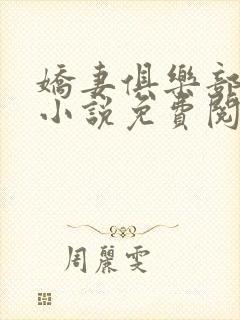 嬌妻俱樂部
小說免費閱
周麗雯